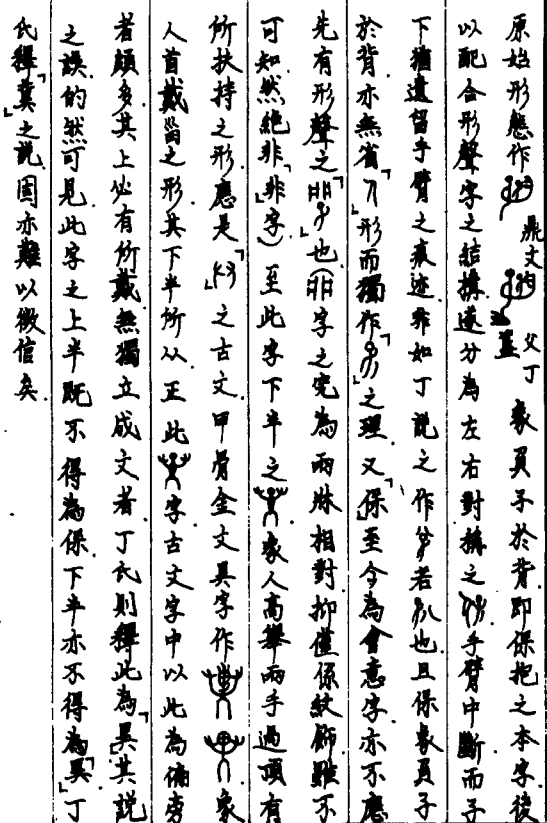 原始形態作 鼎文 父丁 象負子於背即保抱之本字後
以配合形聲字之結構遂分為左右對稱之 手臂中斷而子
下猶遺留手臂之痕迹非如丁說之作 若 也且保象負子
於背亦無省「 」形而獨作「 」之理又「保」至今為會意字亦不應
先有形聲之「 」也(非字之究為兩牀相對抑僅係紋飾雖不
可知然絕非「非」字)至此字下半之 象人高舉兩手過頂有
所扶持之形應是「 」之古文甲骨金文異字作 象
人首戴甾之形其下半所从正此 字古文字中以此為偏旁
者頗多其上必有所戴無獨立成文者丁氏則釋此為「異」其說
之誤的然可見此字之上半既不得為保下半亦不得為「異」丁
氏釋「冀」之說固亦難以徵信矣